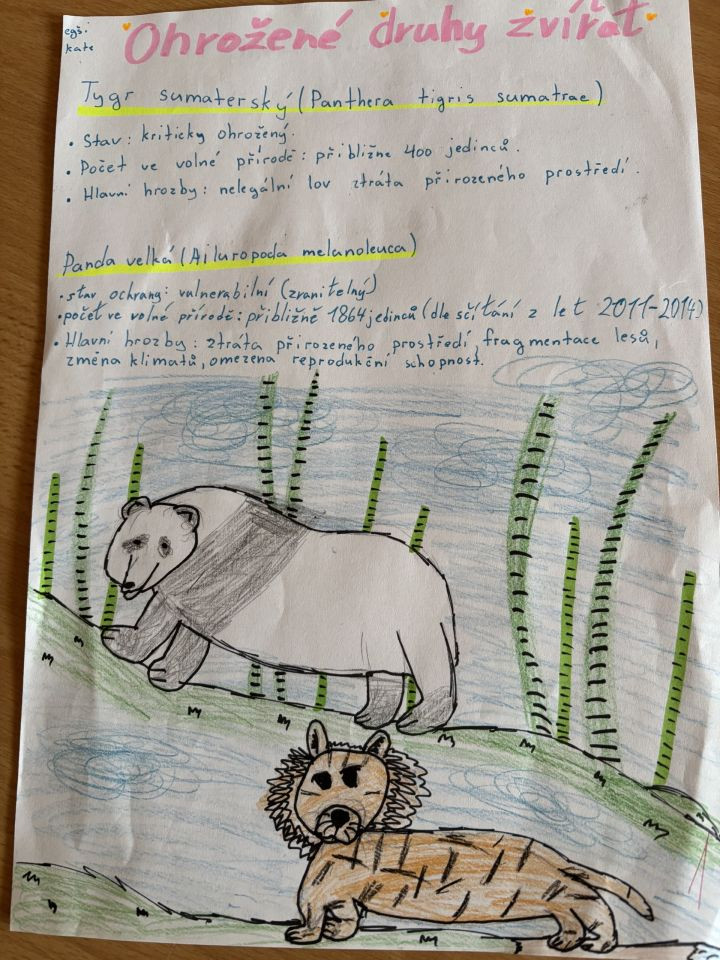 Ohrožené druhy zvířat
Tygr sumaterský (Panthera tigris sumatrae)
• Stav: kriticky ohrožený.
• Počet ve volné přírodě: přibližne 400 jedinců.
• Hlavní hrozby: nelegální lov ztráta přirozeného prostředí.
Panda velká (Ailuropoda melanoleuca)
• stav ochrany: vulnerabilní (zranitelný)
• počet ve volné přírodě: přibližně 1864 jedinců (dle sčítání z let 2011-2014)
• Hlavní hrozby: ztráta přirozeného prostředí, fragmentace lesů,
změna klimatů, omezena reprodukční schopnost.